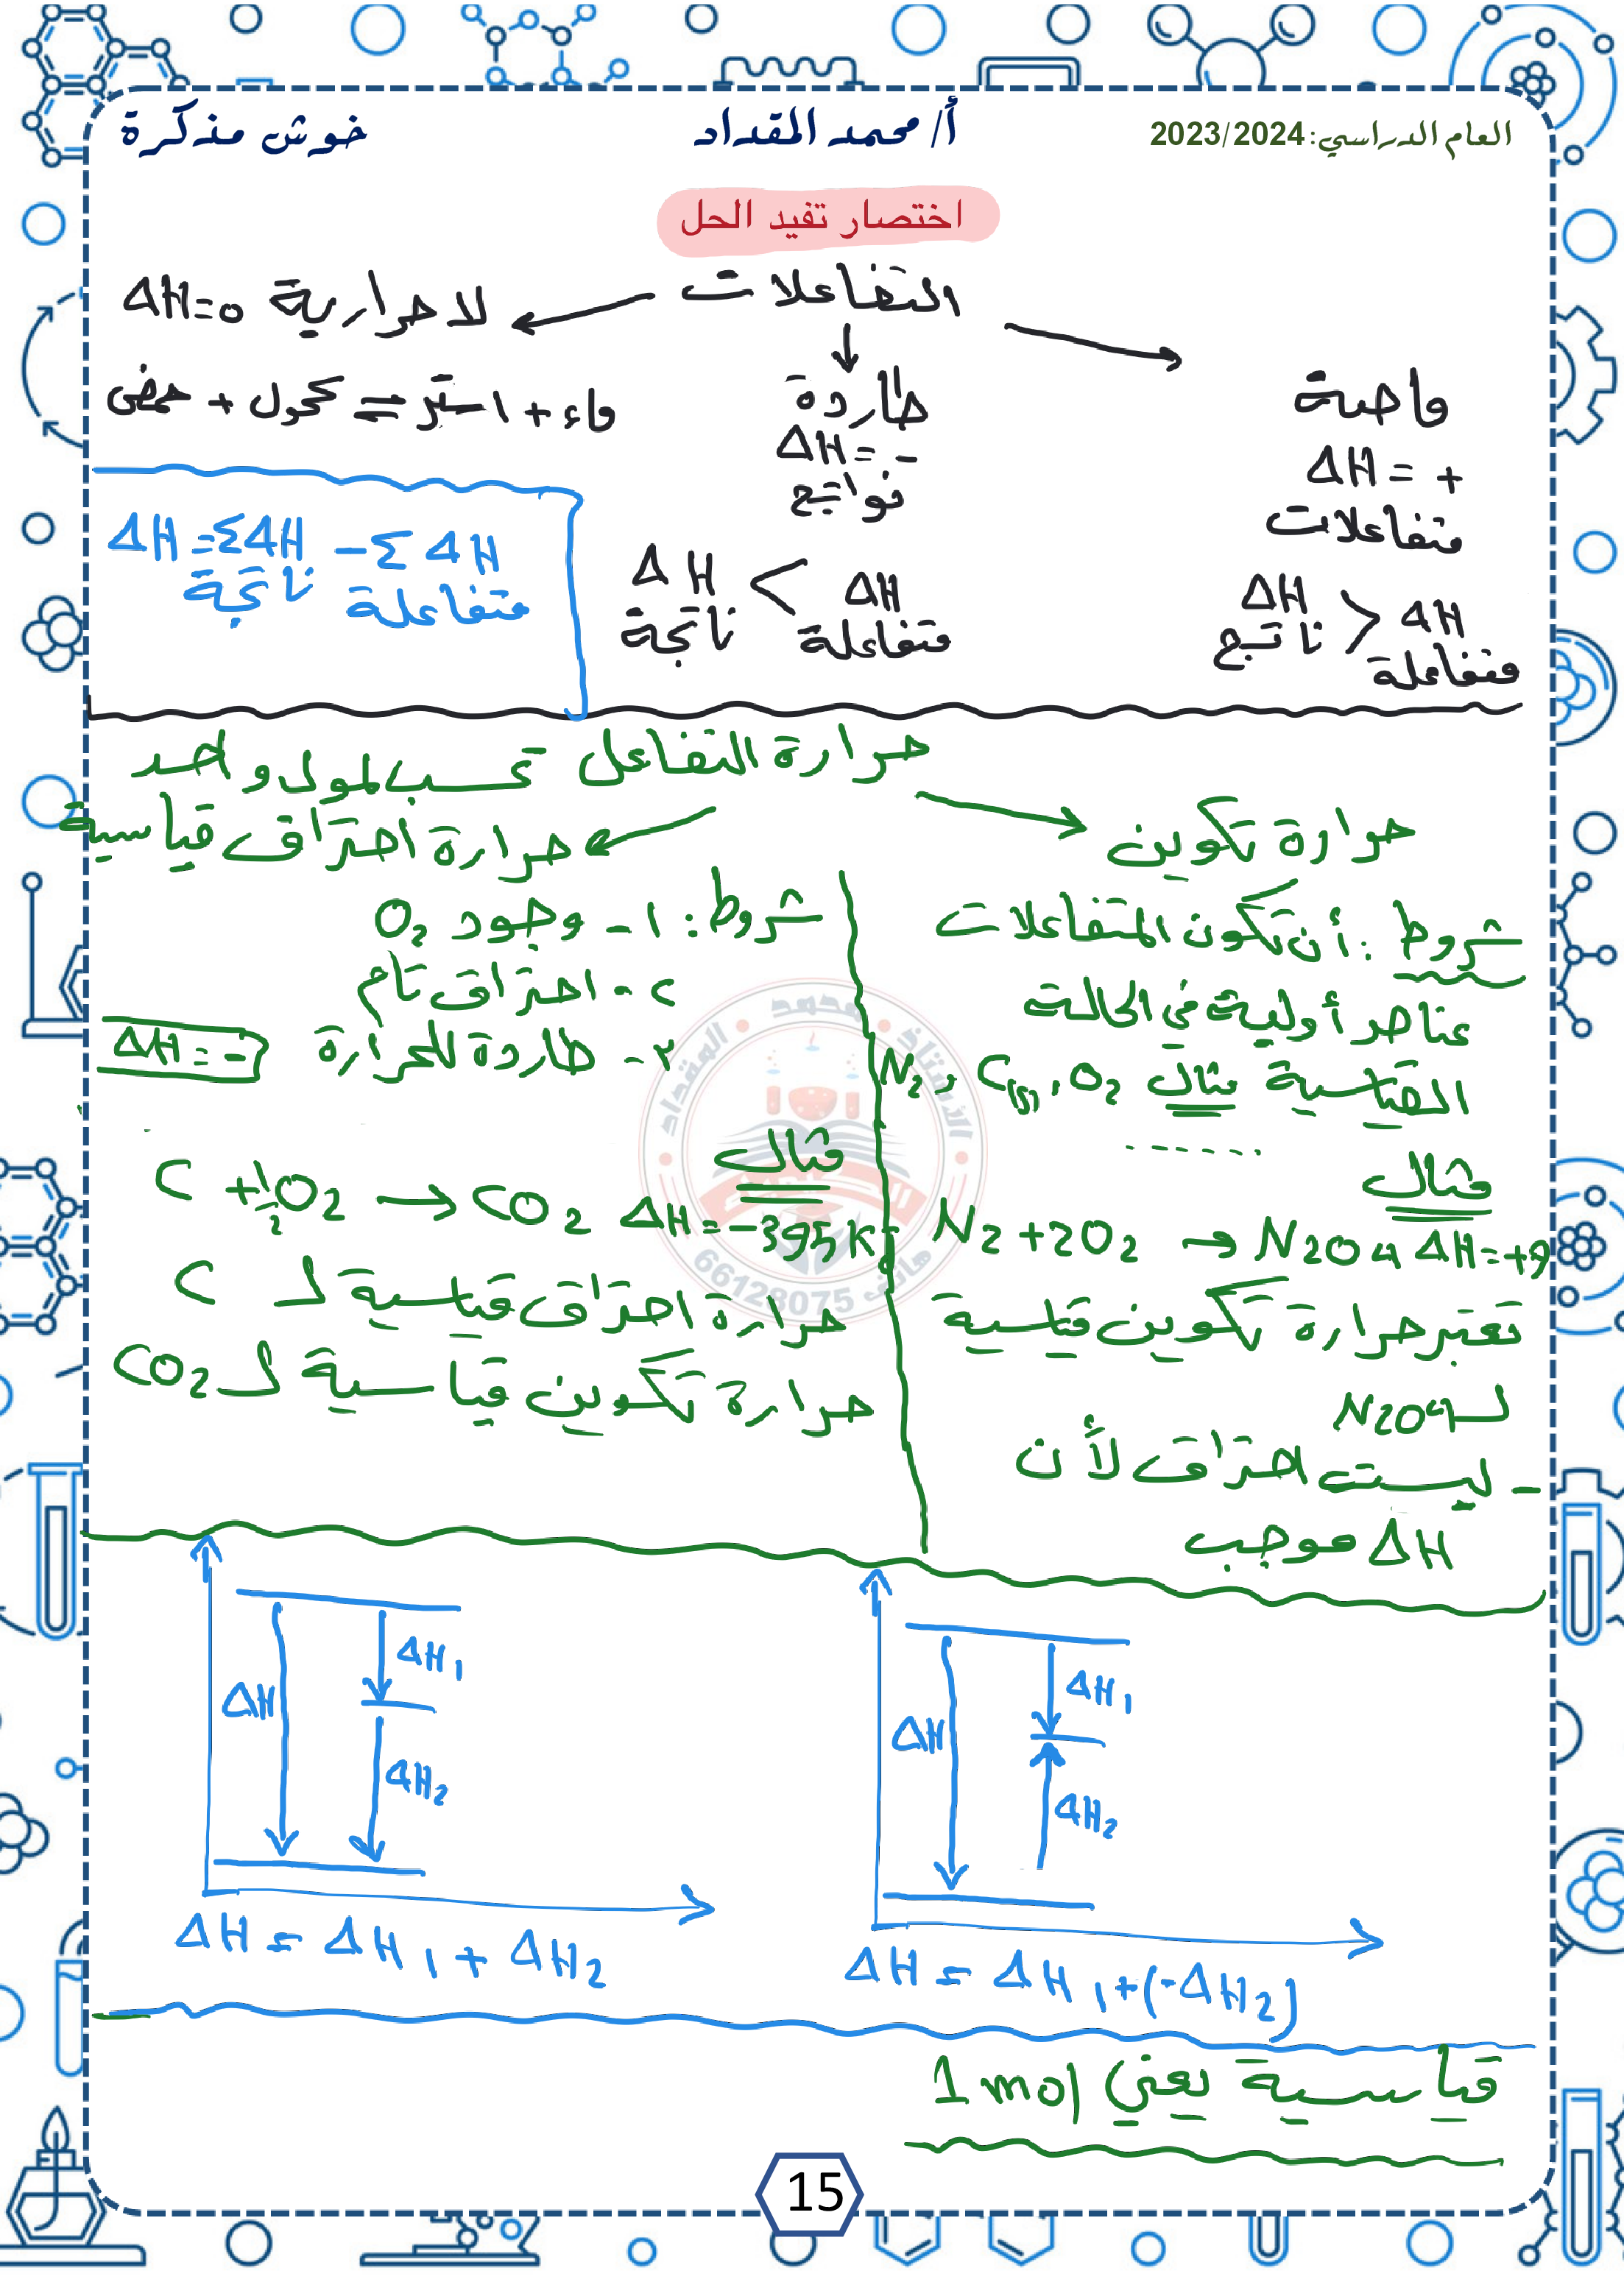 العام الدراسي: 2023/2024
أ/ محمد المقداد
خوش مذكرة
اختصار تفيد الحل
التفاعلات
ماصة
ΔH = +
متفاعلات
ΔH > ΔH
ناتج متفاعلة
طاردة
ΔH = -
نواتج
ΔH < ΔH
ناتجة متفاعلة
لا حرارية ΔH=0
ماء + استر = كحول + حمض
ΔH = ΣΔH - ΣΔH
ناتجة متفاعلة
حرارة التفاعل تحسب لمول واحد
حرارة تكوين
شروط: أن تكون المتفاعلات
عناصر أولية في الحالة
القياسية مثال N2, C(s), O2
مثال
N2 + 2O2 → N2O4 ΔH=+9
تعتبر حرارة تكوين قياسية
لـ N2O4
- ليست احتراق لأن
ΔH موجب
حرارة احتراق قياسية
شروط: ١- وجود O2
٢- احتراق تام
٣- طاردة للحرارة ΔH = -
مثال
C + 1/2 O2 → CO2 ΔH=-395 KJ
حرارة احتراق قياسية لـ C
حرارة تكوين قياسية لـ CO2
الأستاذ محمد المقداد
هاتف 66128075
ΔH
ΔH1
ΔH2
ΔH = ΔH1 + ΔH2
ΔH
ΔH1
ΔH2
ΔH = ΔH1 + (-ΔH2)
قياسية يعني 1 mol
15